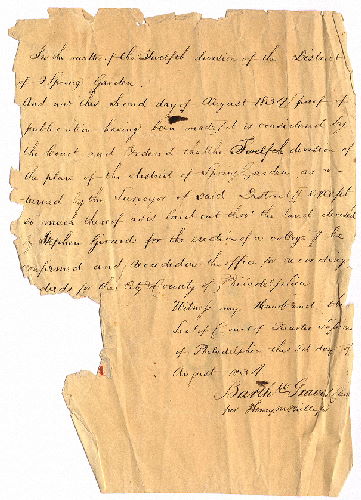 In the matter of the Twelfth division of the District
of Spring Garden.
And now this second day of August 1834 proof of
publication having been made it is considered by
the Court and Ordered that the Twelfth division of
the plan of the district of Spring Garden as re-
turned by the Surveyor of said District Except
so much thereof as is laid out thro' the land devised
by Stephen Girard for the erection of a College be
confirmed and recorded in the office for recording
deeds for the City & County of Philadelphia
Witness my Hand and the
Seal of Court of Quarter Sessions
of Philadelphia this 2d day of
August 1834
Barth w Graves Clerk
per Henry M Phillips